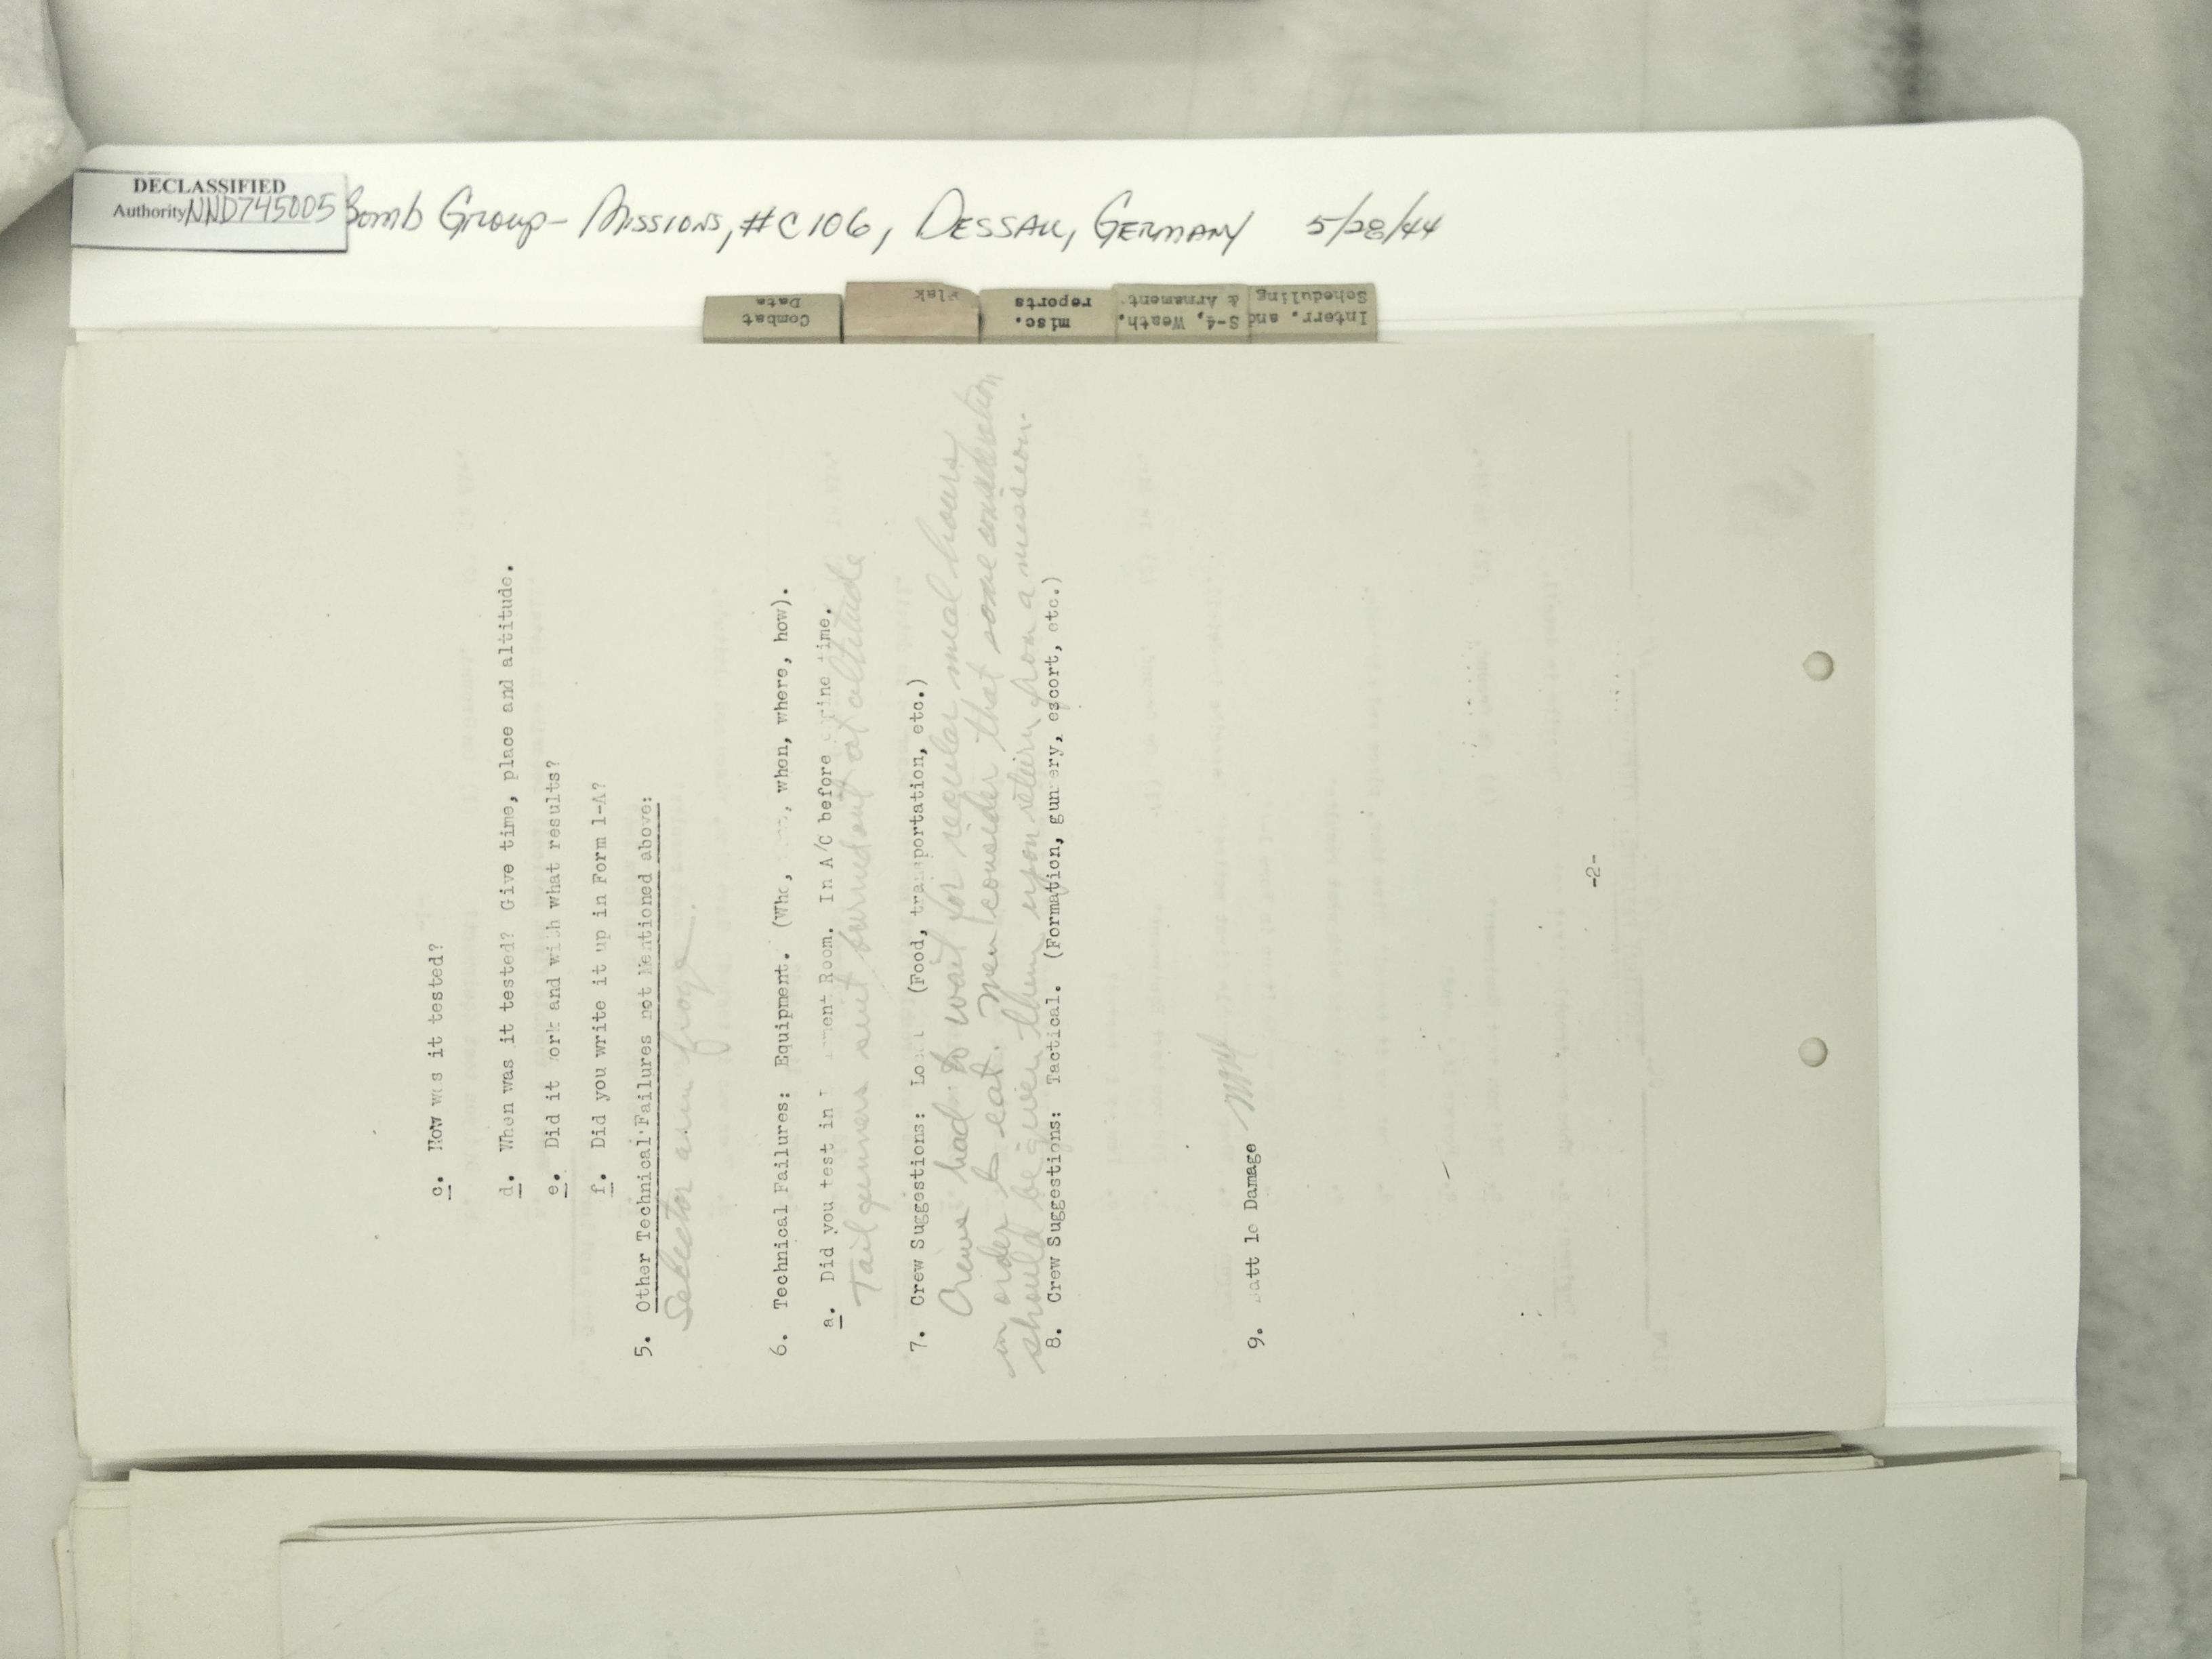 DECLASSIFIED
Authority NND745005
Bomb Group - Missions, #C106, Dessau, Germany 5/28/44
Combat Data
Flak
misc. reports
S-4, Weath. & Armament.
Interr. and Scheduling
c. How was it tested?
d. When was it tested? Give time, place and altitude.
e. Did it work and with what results?
f. Did you write it up in Form 1-A?
5. Other Technical Failures not Mentioned above:
Selector arm froze.
6. Technical Failures: Equipment. (Who, when, where, how).
a. Did you test in Room. In A/C before time.
Tail gunners suit burned out at altitude
7. Crew Suggestions: (Food, transportation, etc.)
Crews had to wait for regular meal hours
in order to eat. Men consider that some consideration
should be given them upon return from a mission.
8. Crew Suggestions: Tactical. (Formation, gunnery, escort, etc.)
9. Battle Damage
-2-